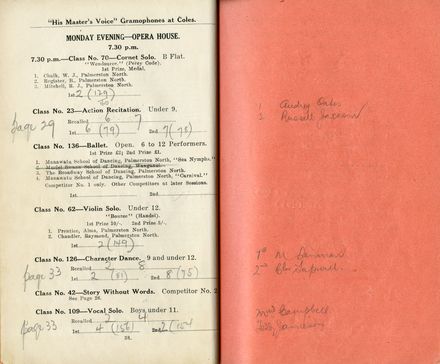 "His Master's Voice" Gramophones at Coles.
MONDAY EVENING—OPERA HOUSE.
7.30 p.m.
7.30 p.m.—Class No. 70—Cornet Solo. B Flat.
"Wendouree." (Percy Code).
1st Prize, Medal.
1. Chalk, W. J., Palmerston North.
2. Register, B., Palmerston North.
3. Mitchell, R. J., Palmerston North.
1st 2 (129)
Class No. 23—Action Recitation. Under 9.
page 29
Recalled 6 7
1st 6 (79) 2nd 7 (78)
Class No. 136—Ballet. Open. 6 to 12 Performers.
1st Prize £3; 2nd Prize £1.
1. Manawatu School of Dancing, Palmerston North, "Sea Nymphs."
2. School of Dancing, Wanganui.
3. The Broadway School of Dancing, Palmerston North.
4. Manawatu School of Dancing, Palmerston North, "Carnival."
Competitor No. 1 only. Other Competitors at later Sessions.
1st 2nd
Class No. 62—Violin Solo. Under 12.
"Bouree" (Handel).
1st Prize 10/-. 2nd Prize 5/-.
1. Prentice, Alma, Palmerston North.
2. Chandler, Raymond, Palmerston North.
1st 2 (149)
Class No. 126—Character Dance. 9 and under 12.
page 33
Recalled 2 8
1st 2 (81) 2nd 8 (75)
Class No. 42—Story Without Words. Competitor No. 2
See Page 26.
Class No. 109—Vocal Solo. Boys, under 11.
page 33
Recalled 2 4
1st 4 (156) 2nd 2 (154
28.
1 Audrey Oates
2 Russell Jackson
1st M.
2nd
Campbell
Jamieson